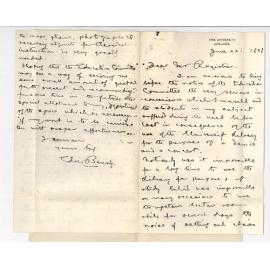 THE UNIVERSITY
ADELAIDE
June xxi. 1898
Dear Mr Registrar
I am anxious to bring
before the notice of the Education
Committee the very serious in-
convenience which I myself and
the students in my subject
suffered during the week before
last in consequence of the
use of the University library
for the purposes of a dance
and a concert.
Not only was it impossible
for a long time to use the
library for purposes of
study but it was impossible
on many occasions to use
the upstairs lecture rooms
while for several days the
noise of setting out chairs
to maps, plans, photographs &
necessary adjuncts for classical
instruction is very greatly
needed.
Hoping that the Education Committee
may see a way of securing me
some small amount of
for the present and
for some time in the future the
special allotment
of the space which is necessary
if my work is to be carried
on with proper effectiveness
I remain
yours truly
Edw. Bensly